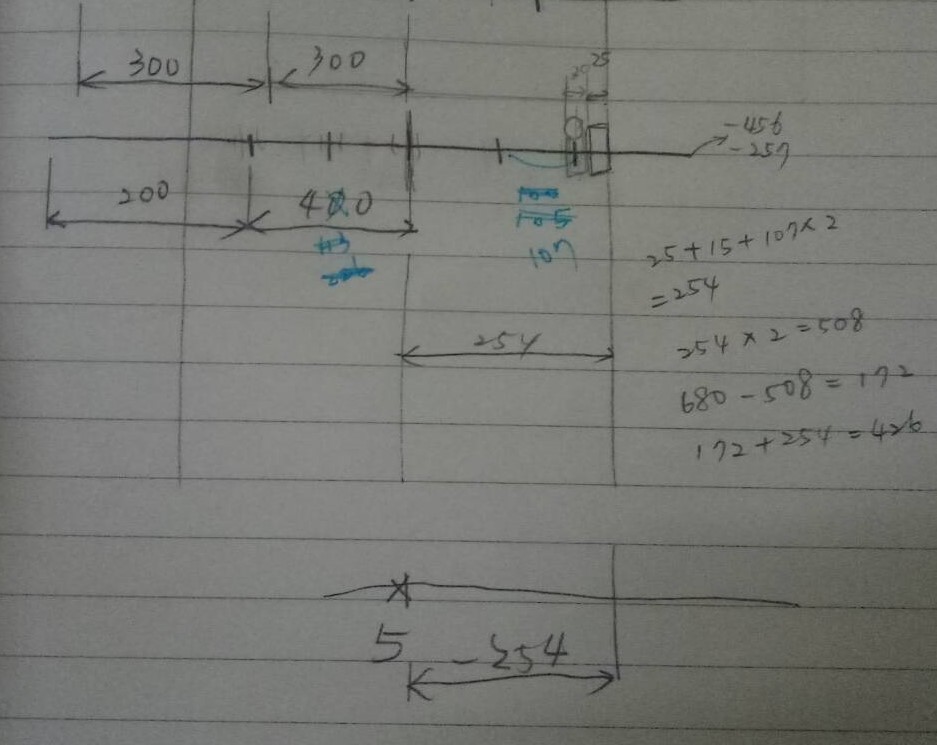 300
300
25
-456
-257
200
400
107
25+15+107×2
=254
254
254×2=508
680-508=172
172+254=426
5
-254